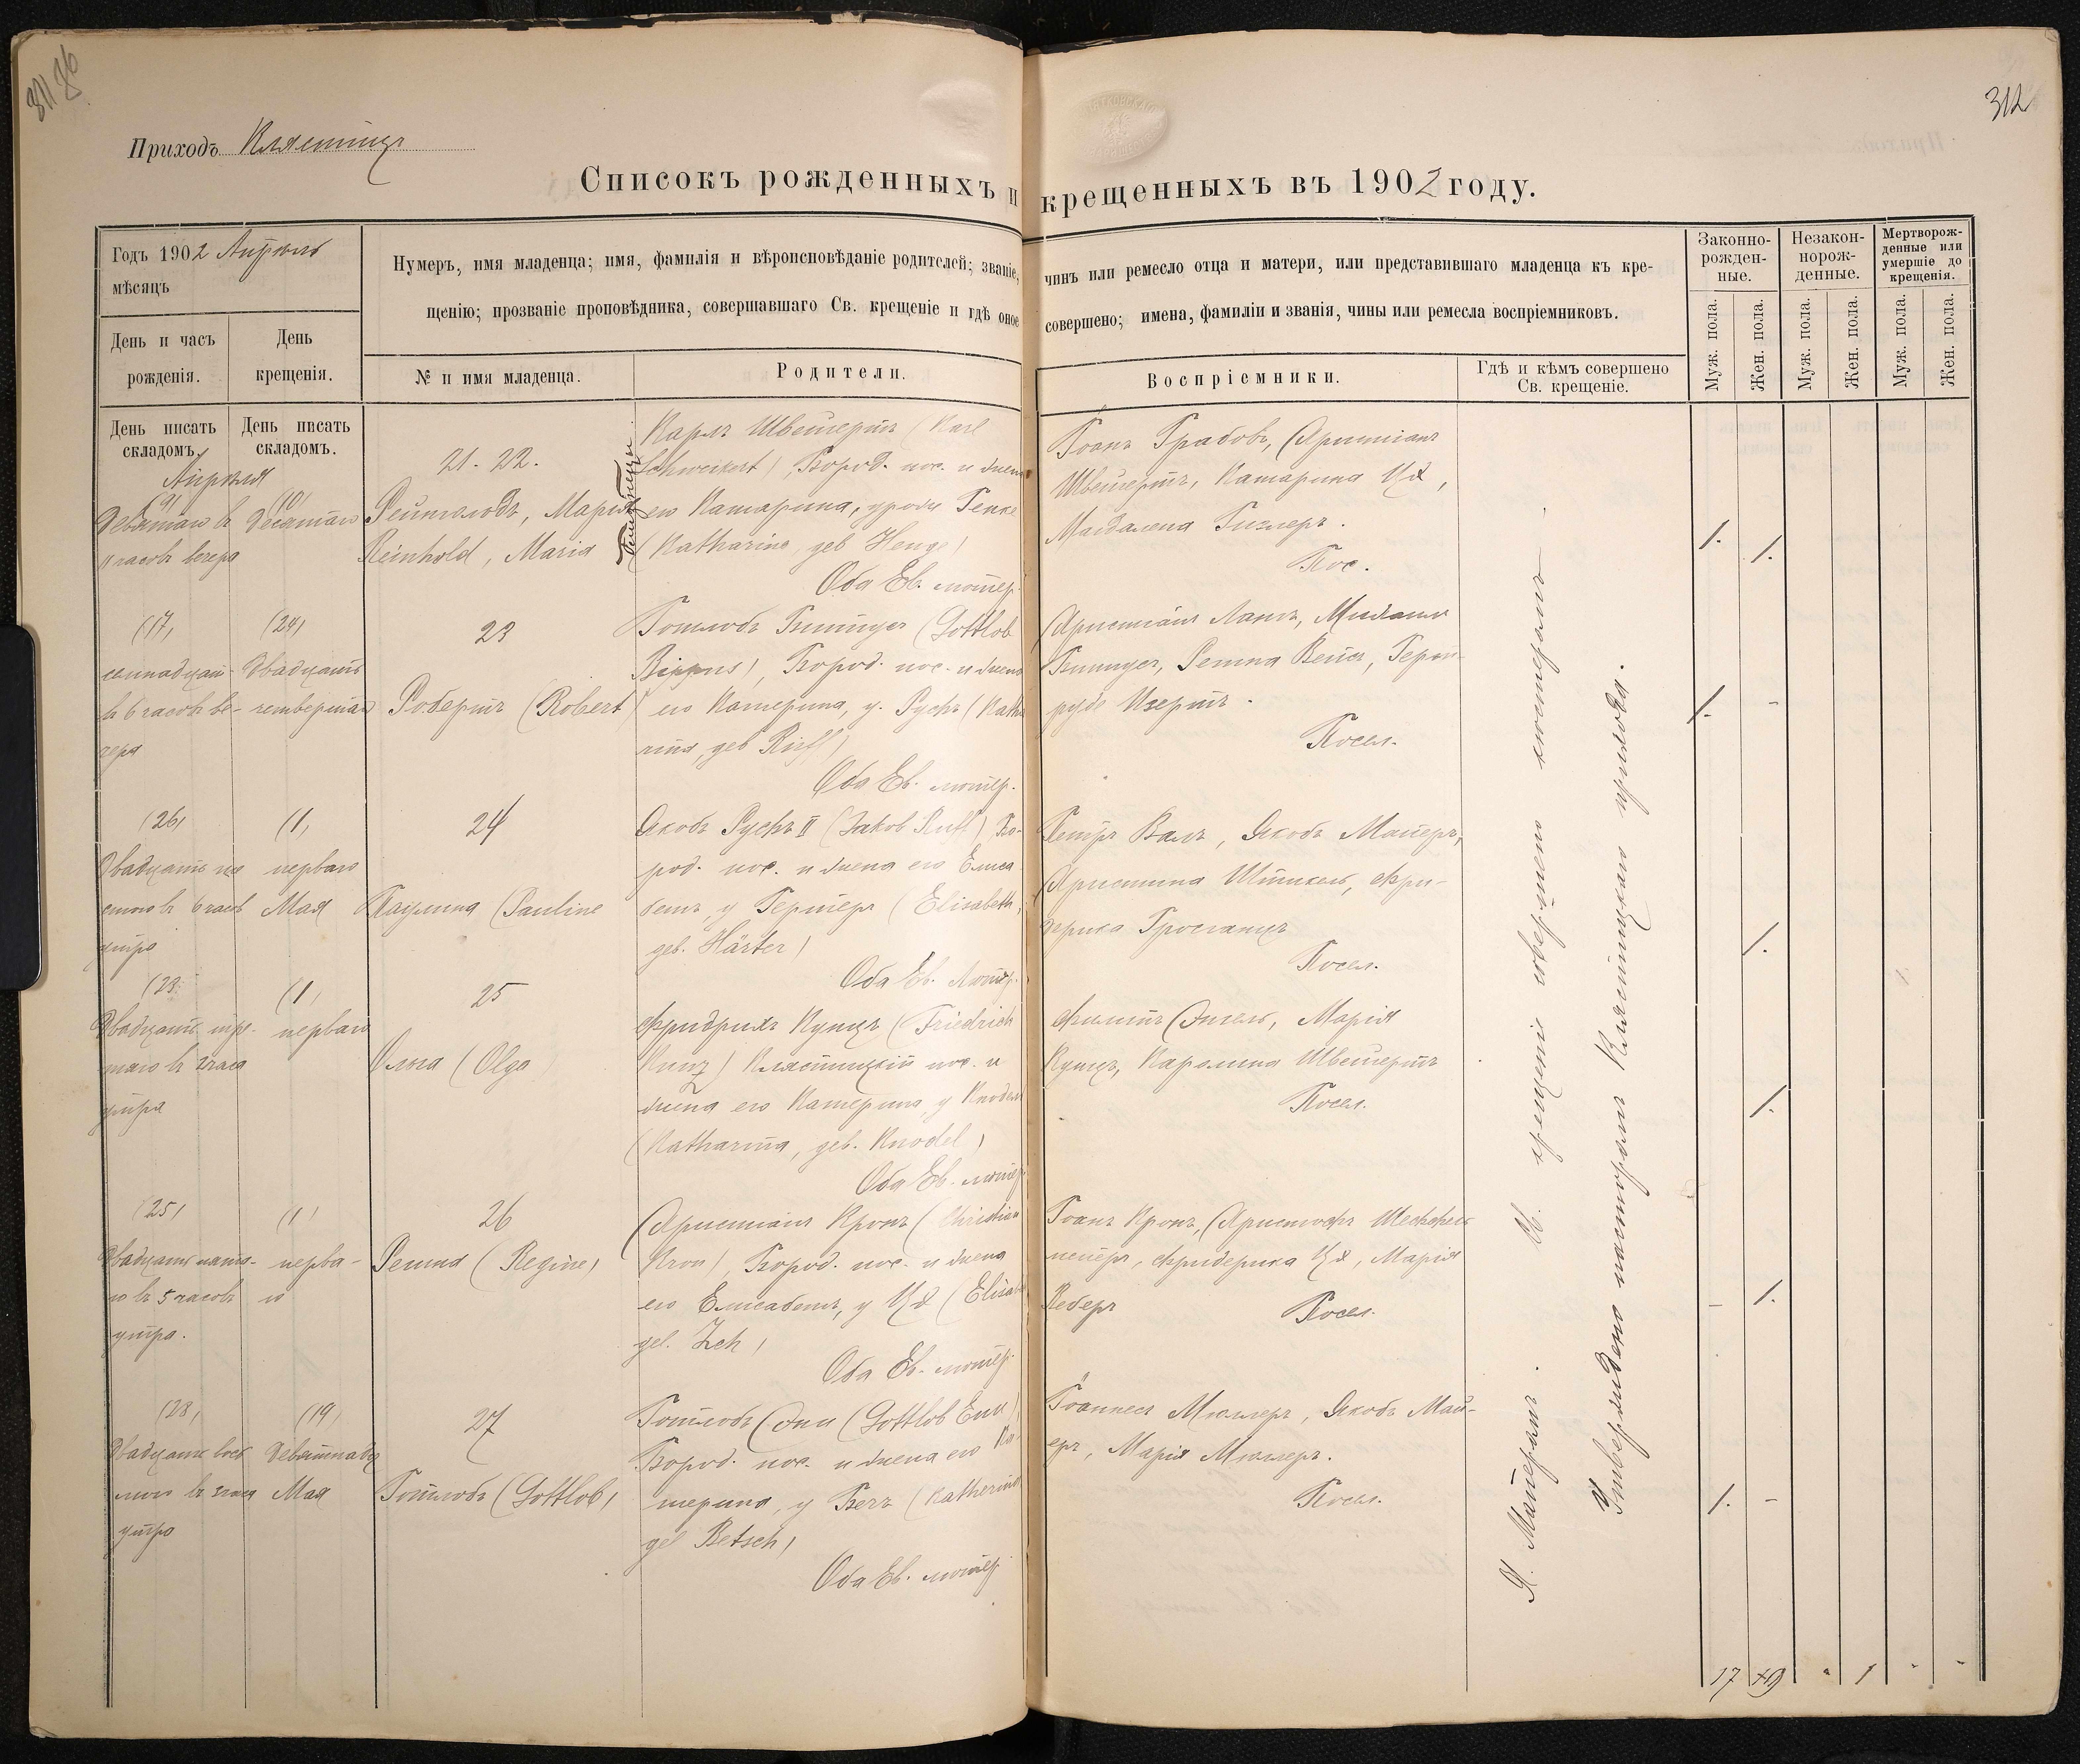 312
Приходъ Клястицъ
Списокъ рожденныхъ и крещенныхъ въ 1902 году.
Годъ 1902 Апрѣль
мѣсяцъ
Нумеръ, имя младенца; имя, фамилія и вѣроисповѣданіе родителей; званіе, чинъ или ремесло отца и матери, или представившаго младенца къ кре-
щенію; прозваніе проповѣдника, совершавшаго Св. крещеніе и гдѣ оное совершено; имена, фамиліи и званія, чины или ремесла воспріемниковъ.
Законно-
рожден-
ные.
Незакон-
норож-
денные.
Мертворож-
денные или
умершіе до
крещенія.
День и часъ
рожденія.
День
крещенія.
№ и имя младенца.
Родители.
Воспріемники.
Гдѣ и кѣмъ совершено
Св. крещеніе.
Муж. пола.
Жен. пола.
Муж. пола.
Жен. пола.
Муж. пола.
Жен. пола.
День писать
складомъ.
День писать
складомъ.
Апрѣля
(9)
Девятаго в
11 часовъ вечера
(10)
Десятаго
21. 22.
Рейнгольдъ, Марія
Reinhold, Maria
близнецы
Карлъ Швейгертъ (Karl
Schweikert), Бород. пос. и жена
его Катарина, урожд Генке
(Katharine, geb Henge)
Оба Ев. лютер.
Іоанъ Грабовъ, Христіанъ
Швейгертъ, Катарина Цѣ,
Магдалена Гиглеръ.
Пос.
1. 1.
(17)
семнадцат-
в 6 часовъ ве-
чера
(24)
двадцать
четвертаго
23
Робертъ (Robert)
Готлобъ Биппусъ (Gottlob
Bippus), Бород. пос. и жена
его Катерина, у. Руфъ (Katha
rina, geb Ruff)
Оба Ев. лютер.
Христіанъ Лангъ,
Биппусъ, Регина Вейсъ, Герт-
руде Изертъ.
Посел.
1. -
(26)
Двадцать ше
стого в 6 часов
утра
(1)
перваго
Мая
24
Паулина (Pauline
Якобъ Руфъ II (Jakob Ruff) Бо-
род. пос. и жена его Елиса
бетъ, у Гертеръ (Elisabeth,
geb. Härter)
Оба Ев. Лютер.
Петръ Валъ, Якобъ Майеръ,
Христина Штикель, Фри-
дрика Гросгансъ
Посел.
1.
(23)
Двадцать тре-
таго в 2 часа
утра
(1)
перваго
25
Ольга (Olga)
Фридрихъ Кунцъ (Friedrich
Kunz) Клястицкій пос. и
жена его Катерина у Кнодель
(Katharina, geb. Knodel)
Оба Ев. лютер
Филипъ Энгель, Марія
Кунцъ, Каролина Швейгертъ
Посел.
1.
(25)
Двадцать пята-
го в 5 часовъ
утра.
(1)
перва-
го
26
Регина (Regine)
Христіанъ Кронъ (Christian
Kron), Бород. пос. и жена
его Елисабетъ, у Цѣ (Elisab
geb. Zeh)
Оба Ев. лютер.
Іоанъ Кронъ, Христофъ
Фридерика Цѣ, Марія
Веберъ
Посел.
- 1.
(28)
Двадцать вось
мого в 2 часа
утра
(19)
Девятнадц
Мая
27
Готлобъ (Gottlob)
Готлобъ (Gottlob
Бород. пос. и жена его Ка-
терина, у Бечъ (Katherina
geb Betsch)
Оба Ев. лютер
Іоаннесъ Мюллеръ, Якобъ Май-
еръ, Марія Мюллеръ.
Посел.
1. -
Св. крещеніе совершено кистеромъ
Я. Майеромъ.
Утверждено пасторомъ Клястицкаго прихода.
17 19 " 1 " "